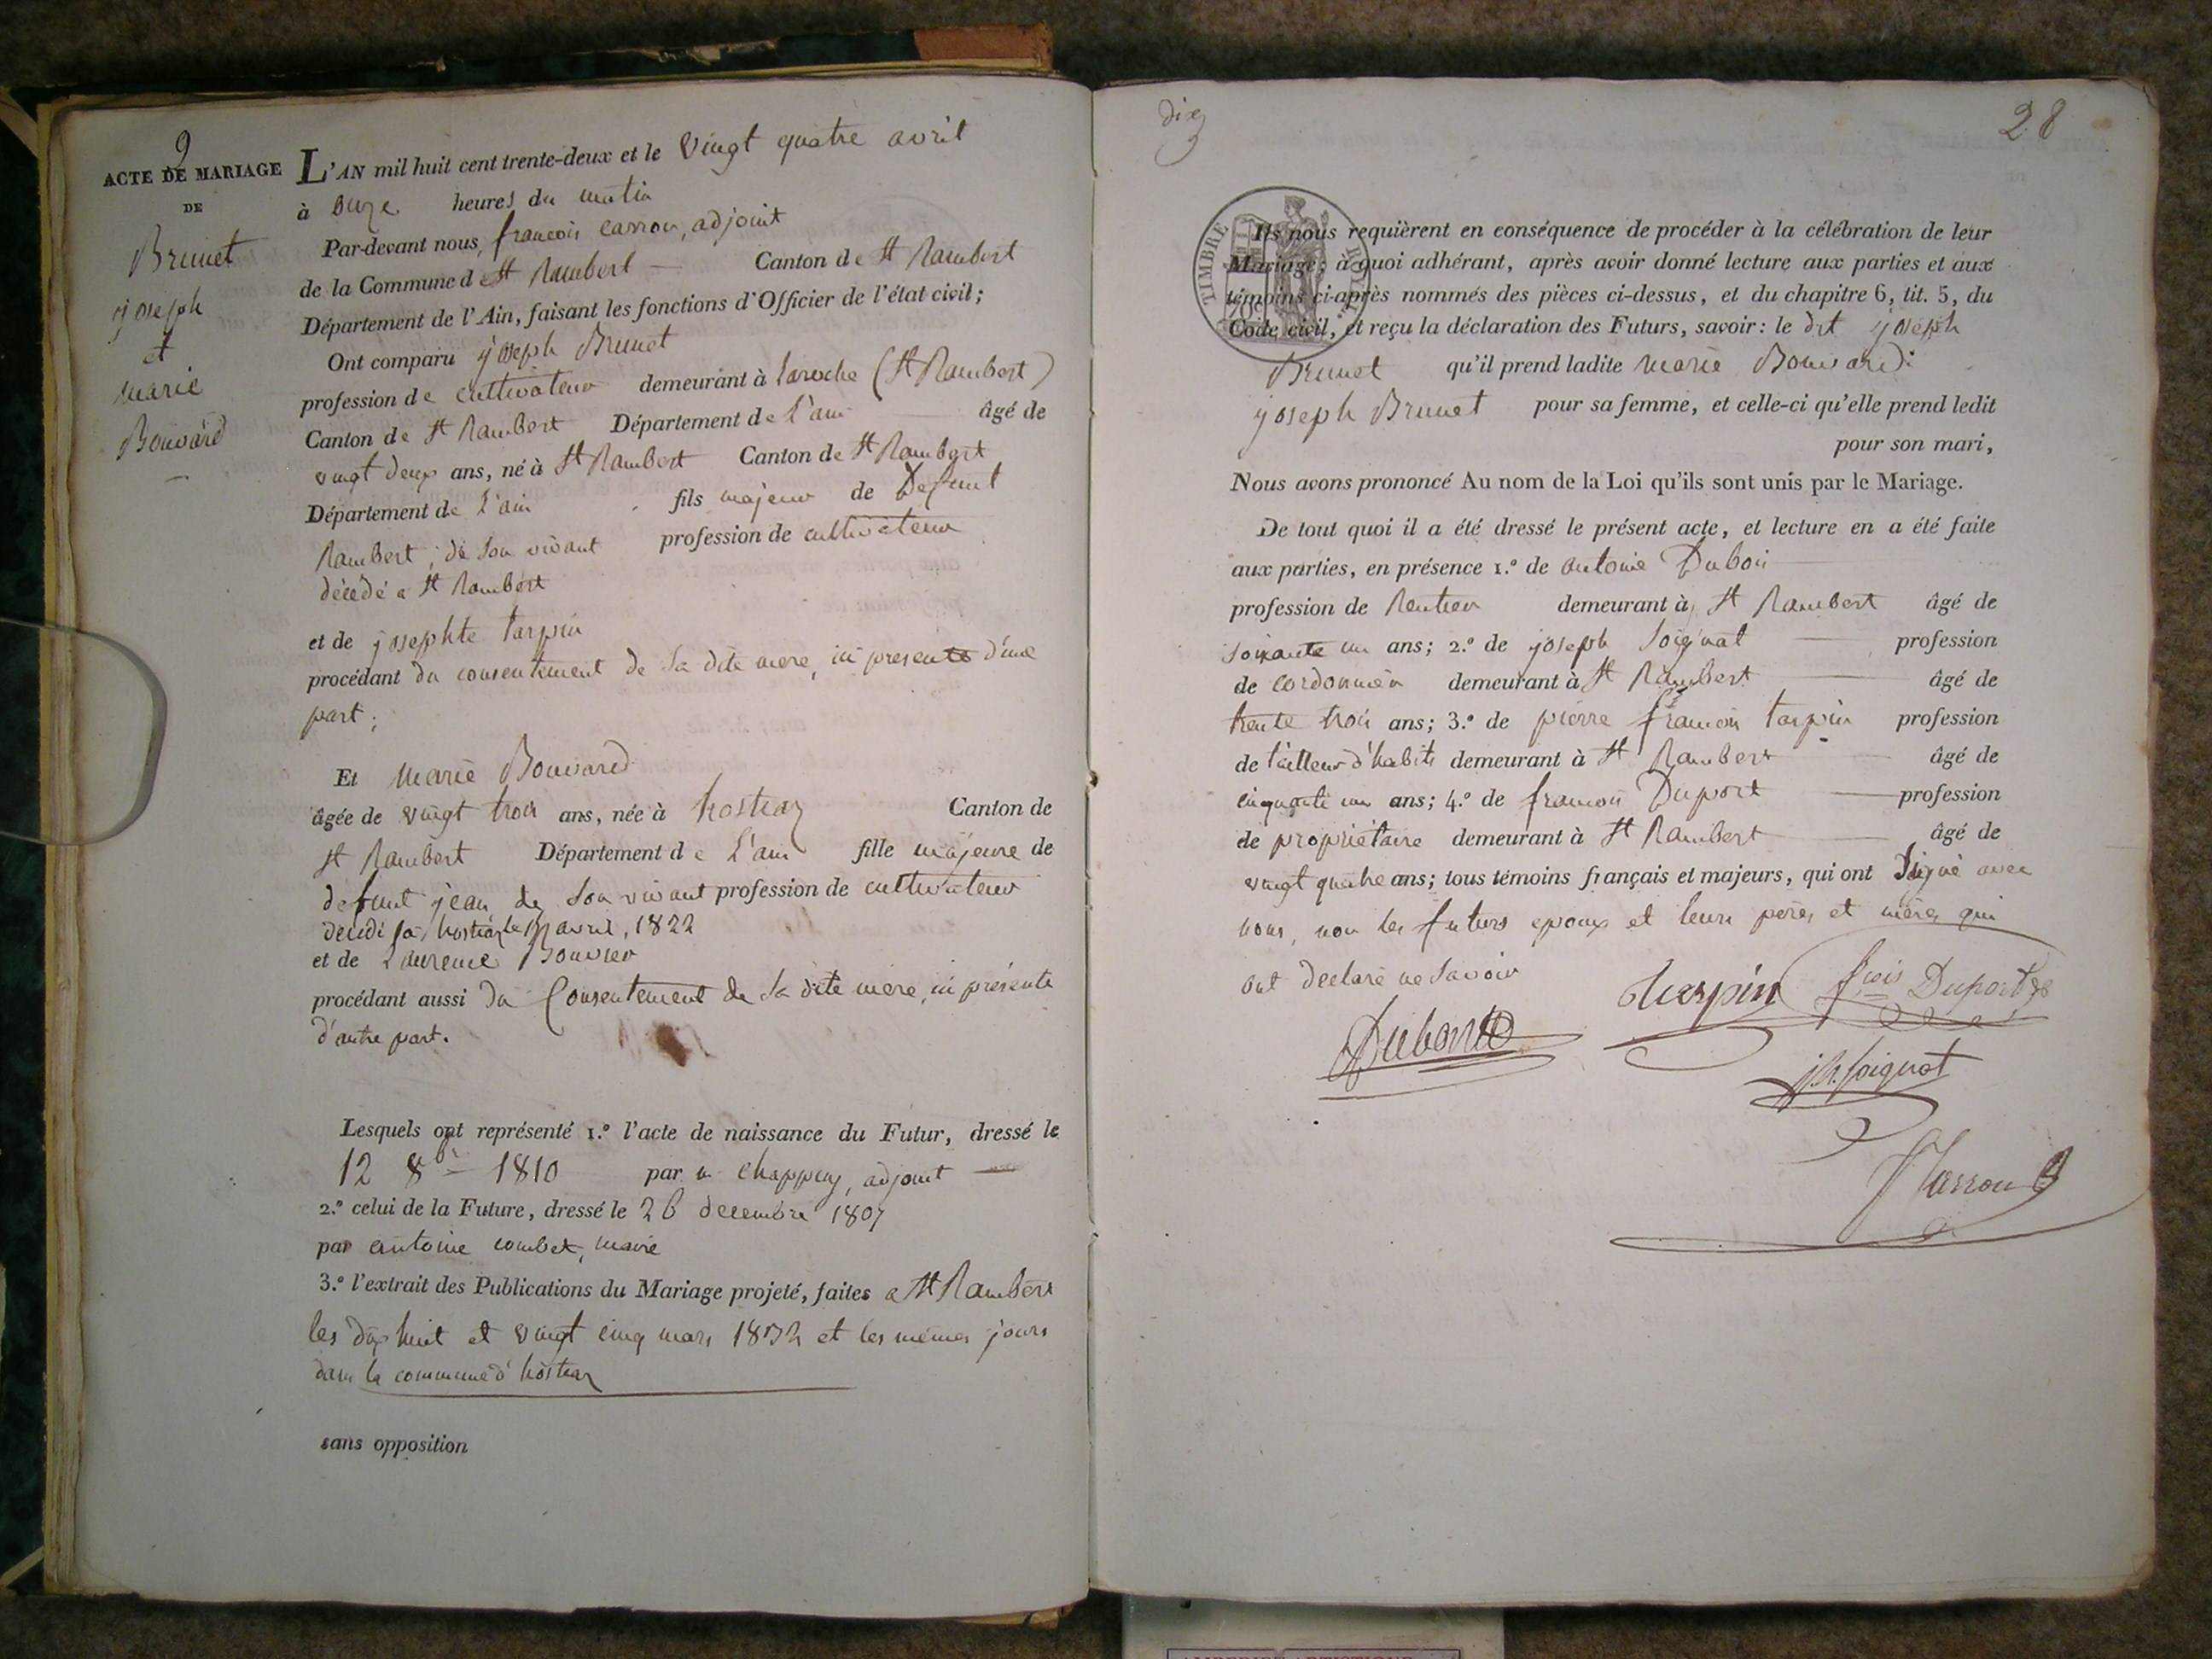 9
ACTE DE MARIAGE
DE
Brunet
joseph
et
marie
Bouvard
L'AN mil huit cent trente-deux et le vingt quatre avril
à onze heures du matin
Par-devant nous, francois Carrou, adjoint
de la Commune de St Rambert Canton de St Rambert
Département de l'Ain, faisant les fonctions d'Officier de l'état civil;
Ont comparu joseph Brunet
profession de cultivateur demeurant à laroche (St Rambert)
Canton de St Rambert Département de L'ain âgé de
vingt deux ans, né à St Rambert Canton de St Rambert
Département de L'ain fils majeur de Defunt
Rambert, de son vivant profession de cultivateur
décédé a St Rambert
et de josephte tarpin
procédant du consentement de sa dite mere, ici presente d'une
part;
Et marie Bouvard
âgée de vingt trois ans, née à hostiaz Canton de
St Rambert Département de L'ain fille majeure de
defunt jean de son vivant profession de cultivateur
décédé a hostiaz le avril, 1822
et de Laurence Bouvier
procédant aussi du Consentement de sa dite mere, ici présente
d'autre part.
Lesquels ont représenté 1.º l'acte de naissance du Futur, dressé le
12 8bre 1810 par m chappuy, adjoint
2.º celui de la Future, dressé le 26 decembre 1807
par antoine combet, maire
3.º l'extrait des Publications du Mariage projeté, faites a St Rambert
les dix huit et vingt cinq mars 1832 et les mêmes jours
dans la commune d'hostiaz
sans opposition
dix
28
TIMBRE ROYAL
70c
Ils nous requièrent en conséquence de procéder à la célébration de leur
Mariage; à quoi adhérant, après avoir donné lecture aux parties et aux
témoins ci-après nommés des pièces ci-dessus, et du chapitre 6, tit. 5, du
Code civil, et reçu la déclaration des Futurs, savoir: le dit joseph
Brunet qu'il prend ladite marie Bouvard
joseph Brunet pour sa femme, et celle-ci qu'elle prend ledit
pour son mari,
Nous avons prononcé Au nom de la Loi qu'ils sont unis par le Mariage.
De tout quoi il a été dressé le présent acte, et lecture en a été faite
aux parties, en présence 1.º de antoine Dubois
profession de Rentier demeurant à St Rambert âgé de
soixante un ans; 2.º de joseph Soignat profession
de cordonnier demeurant à St Rambert âgé de
trente trois ans; 3.º de pierre francois tarpin profession
de tailleur d'habits demeurant à St Rambert âgé de
cinquante un ans; 4.º de francois Duport profession
de propriétaire demeurant à St Rambert âgé de
vingt quatre ans; tous témoins français et majeurs, qui ont Signé avec
nous, non les futurs epoux et leurs peres et meres qui
ont declaré ne Savoir
tarpin fcois Duport
Dubois
j.h. Soignat
f Carrou